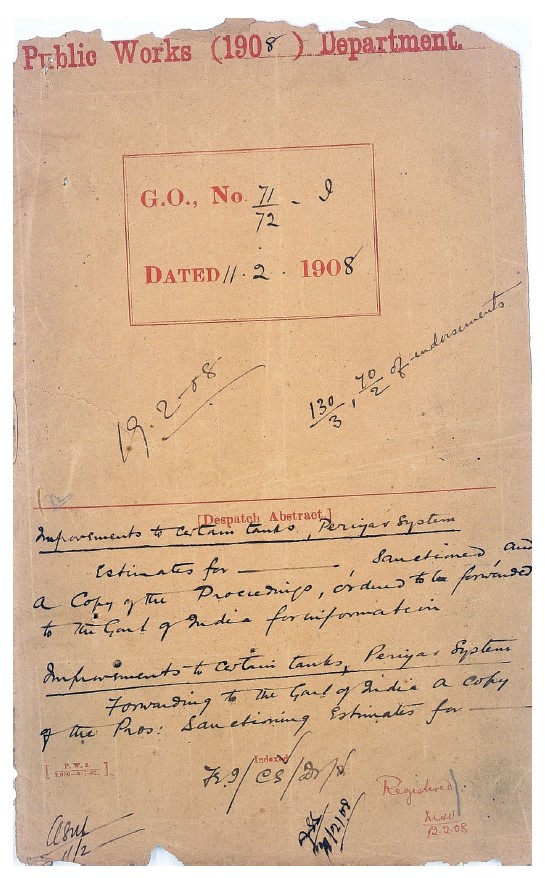 Public Works (1908) Department.
G.O., No. 71/72 - I
DATED 11.2.1908
19.2-08
130/3, 70/2 of endorsements
[Despatch Abstract.]
Improvements to certain tanks, Periyar System
Estimates for ——— Sanctioned, and
a Copy of the Proceedings, ordered to be forwarded
to the Govt of India for information
Improvements to certain tanks, Periyar System
Forwarding to the Govt of India a copy
of the Pros: Sanctioning Estimates for ———
[P. W. S.
Indexed
Registered
12.2.08
11/2